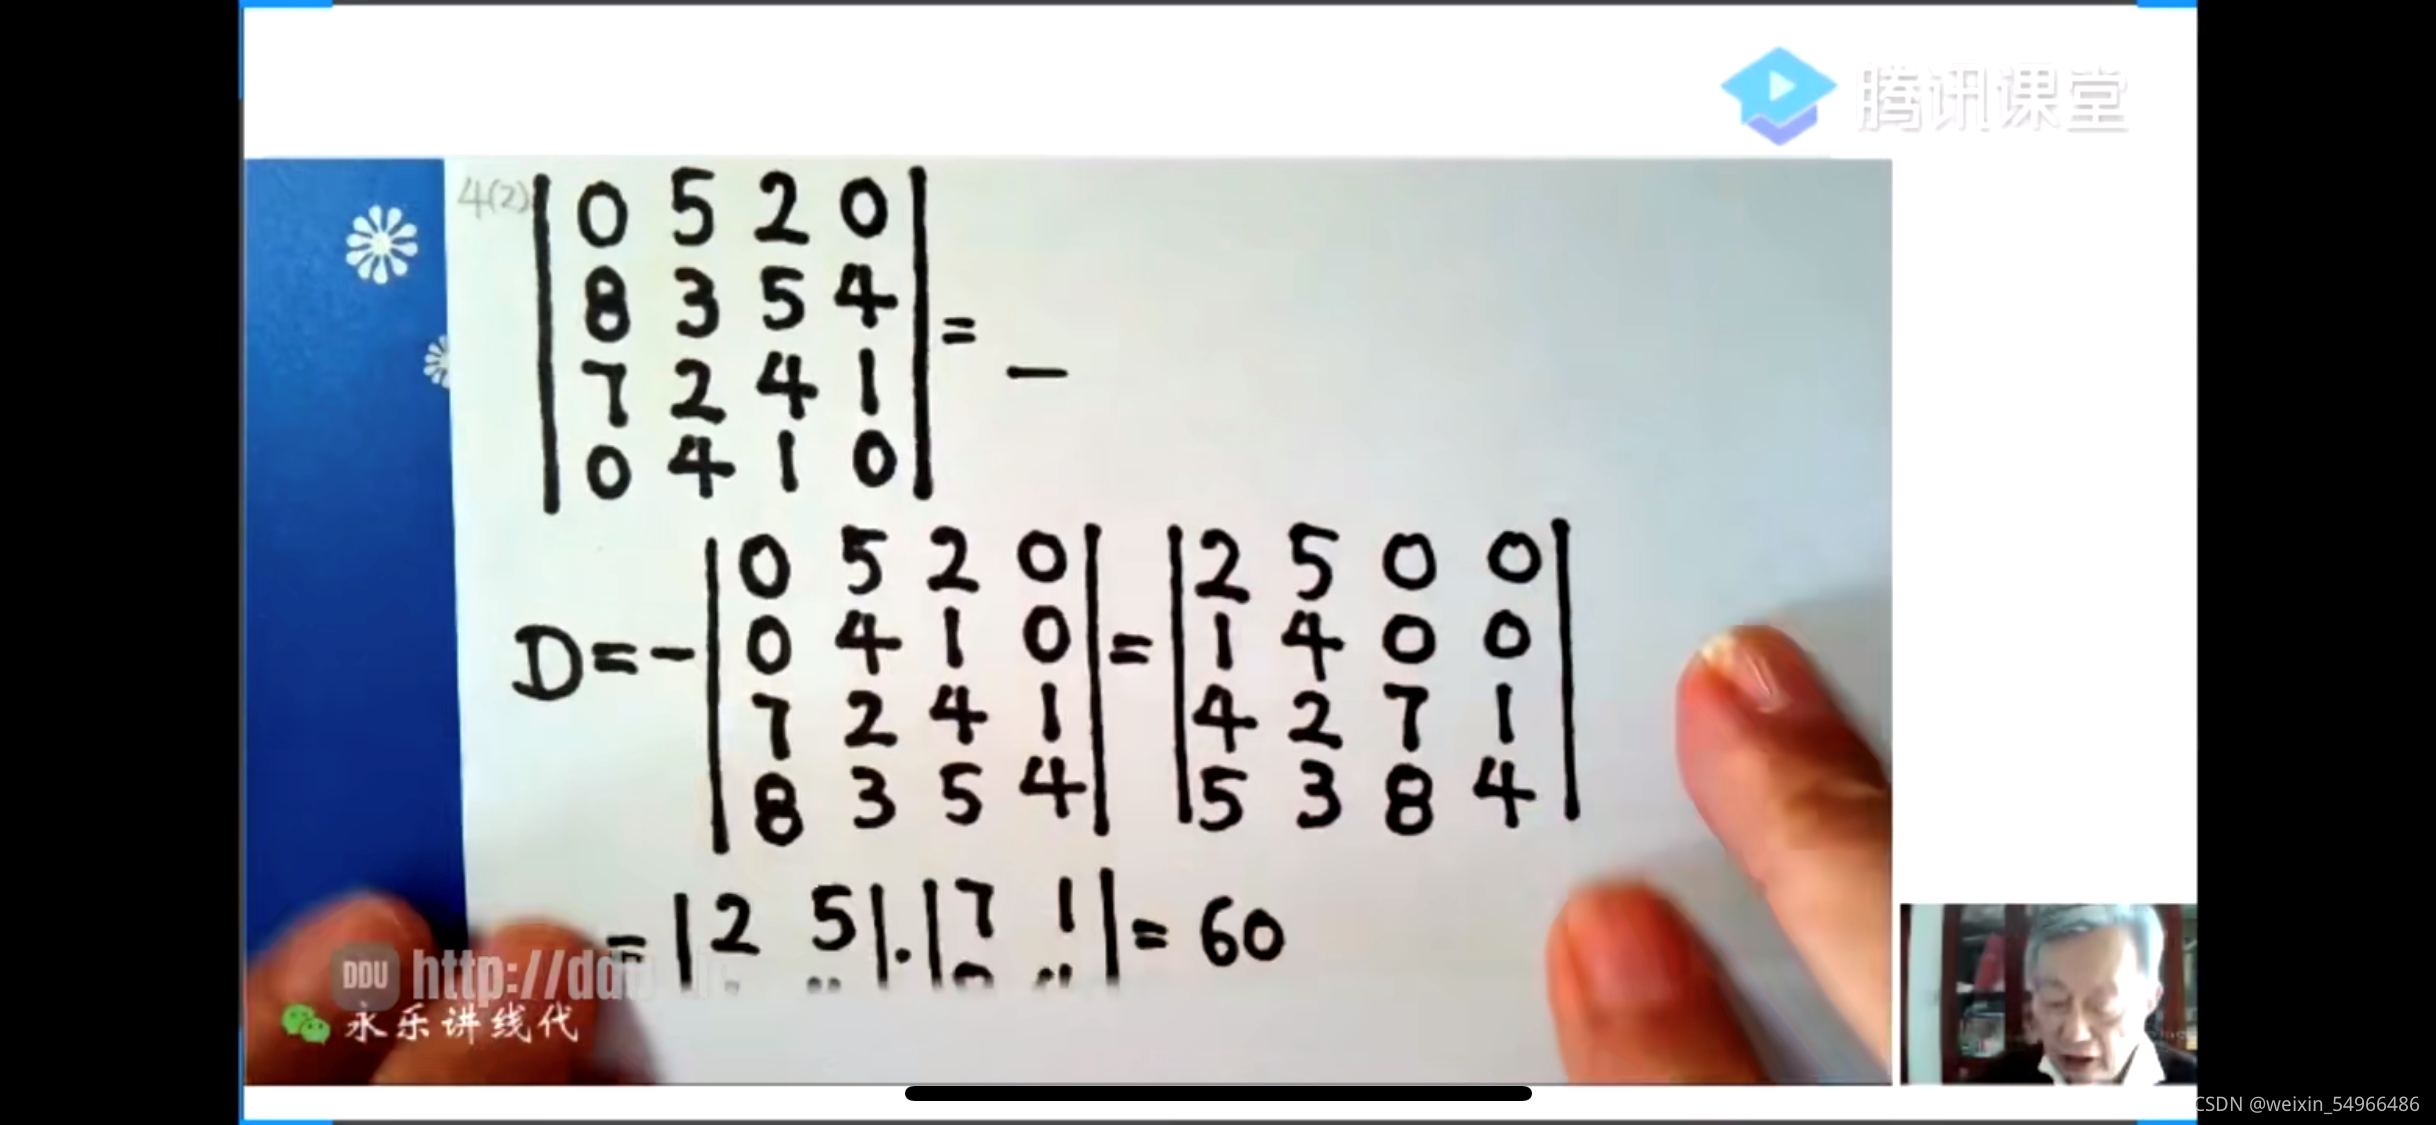 腾讯课堂
4(2)
0 5 2 0
8 3 5 4
7 2 4 1
0 4 1 0
= —
D = -
0 5 2 0
0 4 1 0
7 2 4 1
8 3 5 4
=
2 5 0 0
1 4 0 0
4 2 7 1
5 3 8 4
= | 2 5 | . | 7 1 | = 60
DDU http://ddu
永乐讲线代
CSDN @weixin_54966486